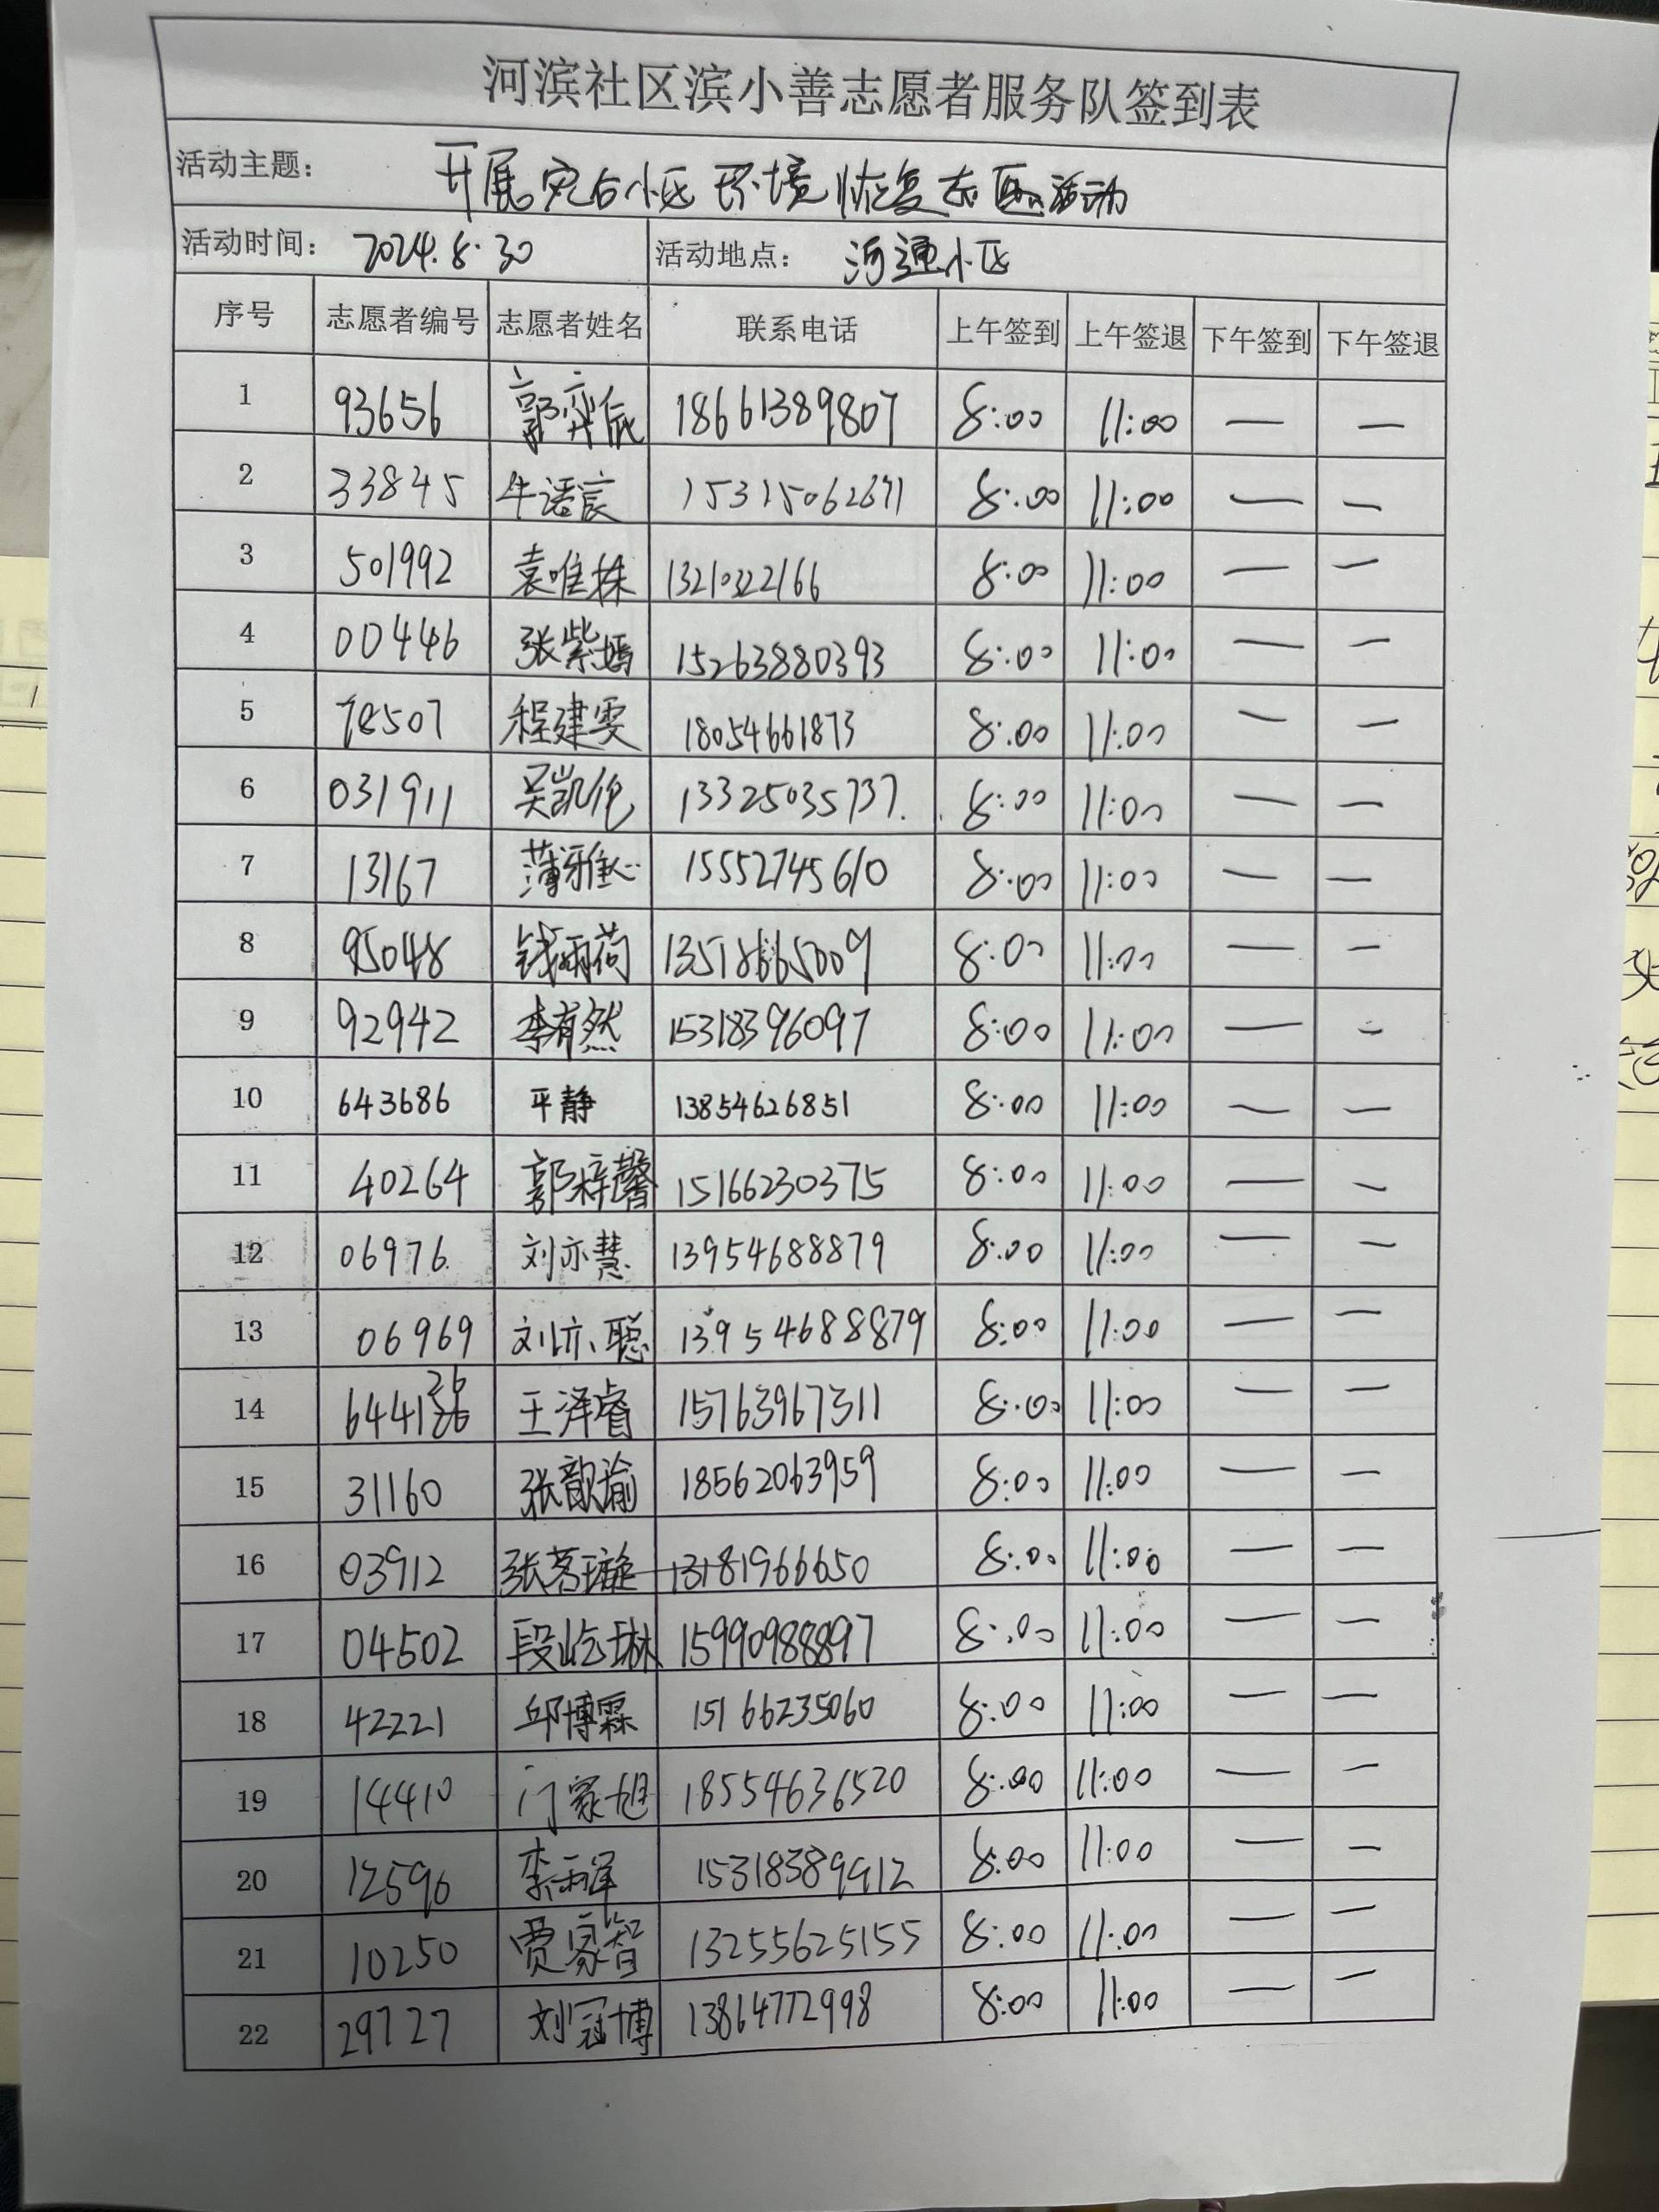 河滨社区滨小善志愿者服务队签到表
活动主题： 开展灾后小区环境恢复志愿活动
活动时间： 2024.8.30 活动地点： 河通小区
序号 志愿者编号 志愿者姓名 联系电话 上午签到 上午签退 下午签到 下午签退
1 93656 郭奕辰 18661389807 8:00 11:00 — —
2 33845 牛语宸 15315062671 8:00 11:00 — —
3 501992 袁唯株 8:00 11:00 — —
4 00446 张紫嫣 15263880393 8:00 11:00 — —
5 78507 程建雯 18054661873 8:00 11:00 — —
6 031911 吴凯伦 13325035737. 8:00 11:00 — —
7 13167 薄雅心 15552745610 8:00 11:00 — —
8 95048 钱雨荷 8:00 11:00 — —
9 92942 李有然 15318396097 8:00 11:00 — —
10 643686 平静 13854626851 8:00 11:00 — —
11 40264 郭梓馨 15166230375 8:00 11:00 — —
12 06976 刘亦慧 13954688879 8:00 11:00 — —
13 06969 刘亦聪 13954688879 8:00 11:00 — —
14 644126 王泽睿 15763967311 8:00 11:00 — —
15 31160 张歆瑜 18562063959 8:00 11:00 — —
16 03912 张茗璇 13181966650 8:00 11:00 — —
17 04502 段屹琳 15990988897 8:00 11:00 — —
18 42221 邱博霖 15166235060 8:00 11:00 — —
19 14410 门家旭 18554636520 8:00 11:00 — —
20 12596 15318389912 8:00 11:00 — —
21 10250 贾家智 13255625155 8:00 11:00 — —
22 29727 刘冠博 13864772998 8:00 11:00 — —